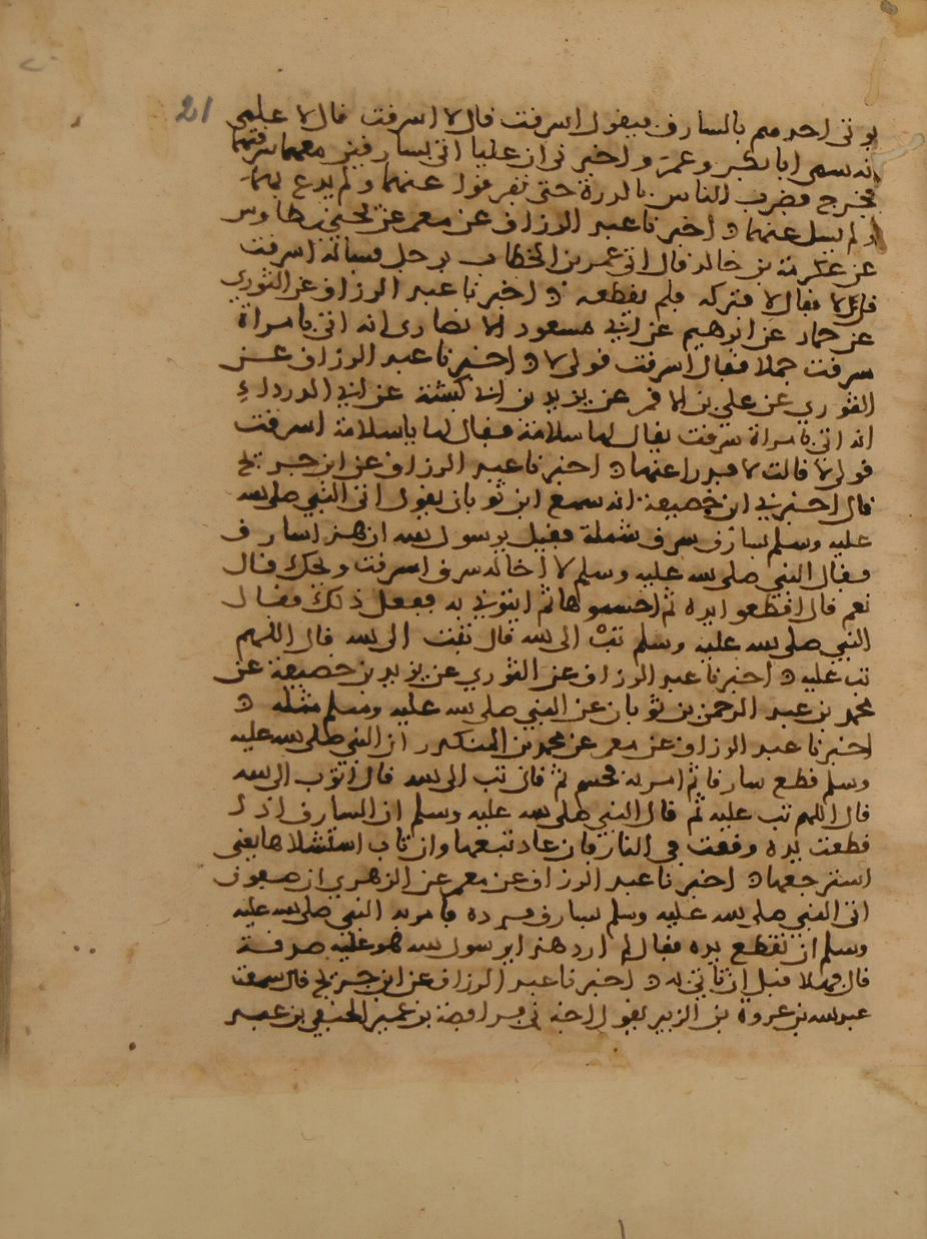 21
يوتى احدهم بالسارق فيقول اسرقت قال لا اسرقت قال لا علمى
انه سمى ابا بكر وعمر واخبرنى ان عليا اتى بسارقين معهما سرقتهما
فخرج فضرب الناس بالدرة حتى تفرقوا عنهما ولم يدع بهما
ولم يسل عنهما ه اخبرنا عبد الرزاق عن معمر عن طاوس
عن عكرمة بن خالد قال اتى عمر بن الخطاب برجل فساله اسرقت
قال لا فقال لا فتركه فلم يقطعه ه اخبرنا عبد الرزاق عن الثوري
عن حماد عن ابرهيم عن ابي مسعود الانصارى انه اتى بامراة
سرقت جملا فقال اسرقت قولى لا ه اخبرنا عبد الرزاق عن
الثوري عن علي بن الاقمر عن يزيد بن ابي كبشة عن ابي الدرداء
انه اتى بامراة سرقت يقال لها سلامة فقال لها ياسلامة اسرقت
قولى لا قالت لا فدرا عنها ه اخبرنا عبد الرزاق عن ابن جريج
قال اخبرني ابن خصيفة انه سمع ابن ثوبان يقول اتى النبي صلى الله
عليه وسلم بسارق سرق شملة فقيل يرسول الله ان هذا سارق
فقال النبي صلى الله عليه وسلم لا اخاله سرق اسرقت ويحك قال
نعم قال اقطعوا يده ثم احسموها ثم ايتوني به ففعل ذلك فقال
النبي صلى الله عليه وسلم تب الى الله قال تبت الى الله قال اللهم
تب عليه ه اخبرنا عبد الرزاق عن الثوري عن يزيد بن خصيفة عن
محمد بن عبد الرحمن بن ثوبان عن النبي صلى الله عليه وسلم مثله ه
اخبرنا عبد الرزاق عن معمر عن محمد بن المنكدر ان النبي صلى الله عليه
وسلم قطع سارقا ثم امر به فحسم ثم قال تب الى الله قال اتوب الى الله
قال اللهم تب عليه ثم قال النبي صلى الله عليه وسلم ان السارق اذا
قطعت يده وقعت في النار فان عاد تبعها وان تاب استشلاها يعني
استرجعها ه اخبرنا عبد الرزاق عن معمر عن الزهري ان صفون
اتى النبي صلى الله عليه وسلم بسارق بردة فامر به النبي صلى الله عليه
وسلم ان تقطع يده فقال لم ارد هذا يرسول الله هو عليه صدقة
قال فهلا قبل ان تاتي به ه اخبرنا عبد الرزاق عن ابن جريج قال سمعت
عبد الله بن عروة بن الزبير يقول فرافصة بن عمير الحنفي بن عبد